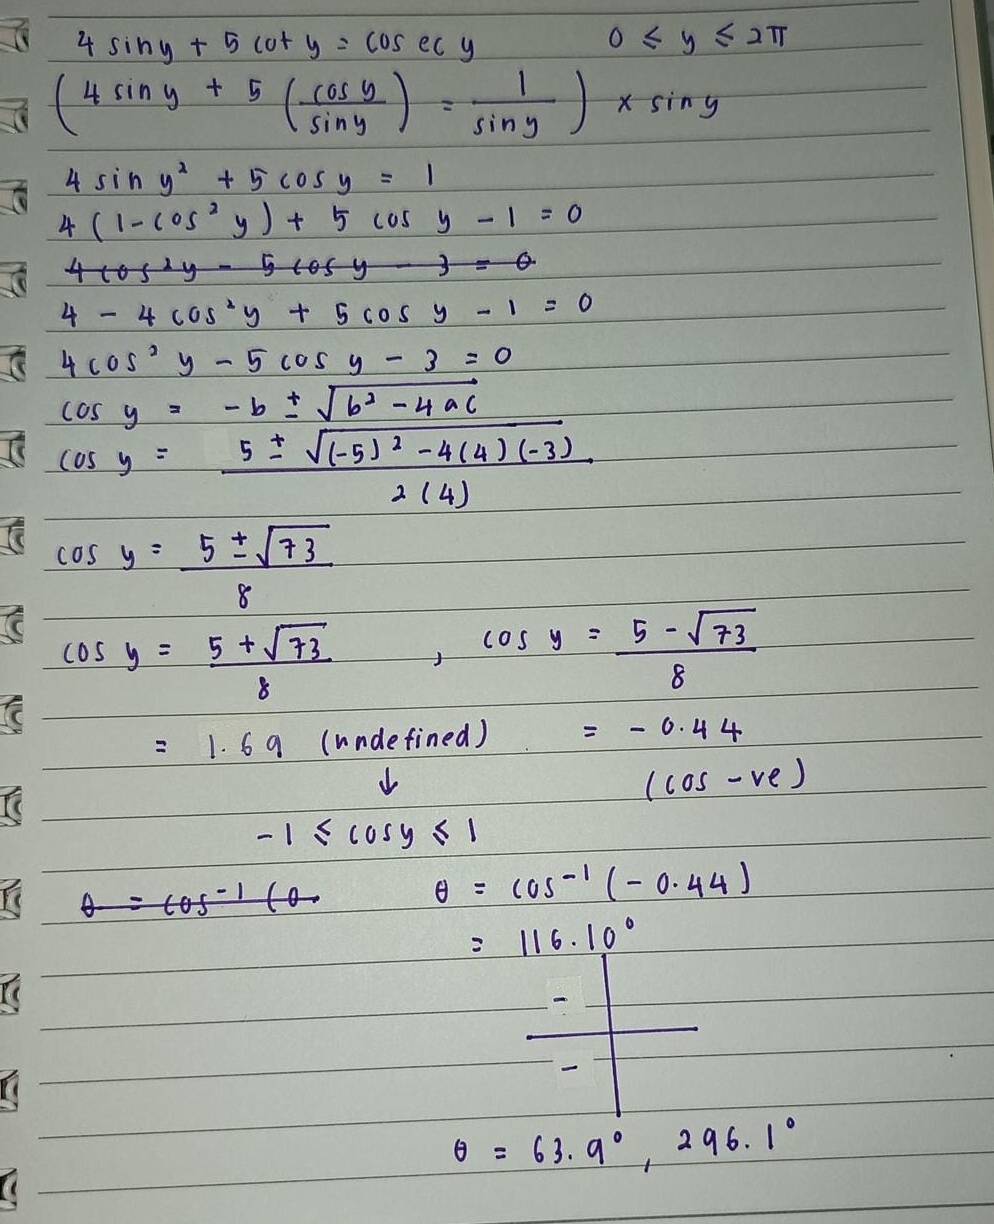 4 sin y + 5 cot y = cos ec y 0 ≤ y ≤ 2π
(4 sin y + 5 (cos y / sin y) = 1 / sin y) × sin y
4 sin y² + 5 cos y = 1
4 (1 - cos² y) + 5 cos y - 1 = 0
4 cos² y - 5 cos y - 3 = 0
4 - 4 cos² y + 5 cos y - 1 = 0
4 cos² y - 5 cos y - 3 = 0
cos y = -b ± √b² - 4ac
cos y = 5 ± √(-5)² - 4(4)(-3) / 2(4)
cos y = 5 ± √73 / 8
cos y = 5 + √73 / 8 , cos y = 5 - √73 / 8
= 1.69 (undefined) = - 0.44
↓ (cos -ve)
-1 ≤ cos y ≤ 1
θ = cos⁻¹ (0. θ = cos⁻¹ (- 0.44)
= 116.10°
-
-
θ = 63.9° , 296.1°